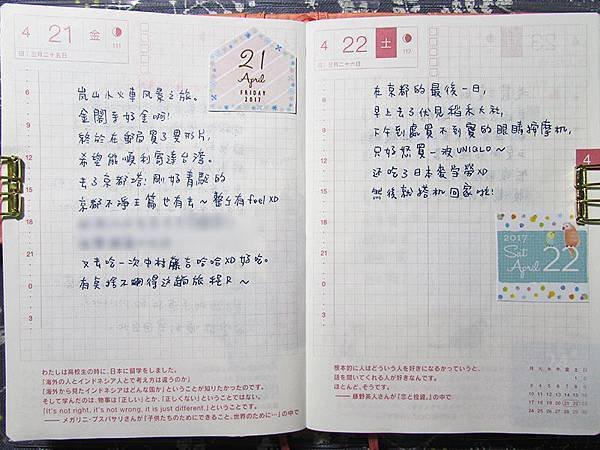 4 21 金 111
旧:三月二十五日
21
April
FRIDAY
2017
嵐山小火車風景之旅。
金閣寺好金啊!
終於在郵局買了異形片,
希望能順利寄達台灣。
去了京都塔!剛好青龍的
京都不淨王篇也有去~整個有fuel XD
又去喝一次中村藤吉哈哈XD好喝。
有真捨不得這趟旅程R~
わたしは高校生の時に、日本に留学をしました。
「海外の人とインドネシア人とで考え方は違うのか」
「海外から見たインドネシアはどんな国か」ということが知りたかったのです。
そして学んだのは、物事は「正しい」とか、「正しくない」ということではない。
「It's not right, it's not wrong, it is just different.」ということです。
── メガリニ・プスパサリさんが『子供たちのためにできること、世界のために…』の中で
4 22 土 112
旧:三月二十六日
在京都的最後一日,
早上去了伏見稻禾大社,
下午到處買不到寶的眼睛按摩机,
只好怒買一波UNIQLO~
还吃了日本麥當勞XD
然後就搭机回家啦!
4
2017
Sat
April 22
根本的に人はどういう人を好きになるかっていうと、
話を聞いてくれる人が好きなんです。
ほとんど、そう。
── 藤野英人さんが『恋と投資。』の中で
4 月 火 水 木 金 土 日
1 2
3 4 5 6 7 8 9
10 11 12 13 14 15 16
17 18 19 20 21 22 23
24 25 26 27 28 29 30